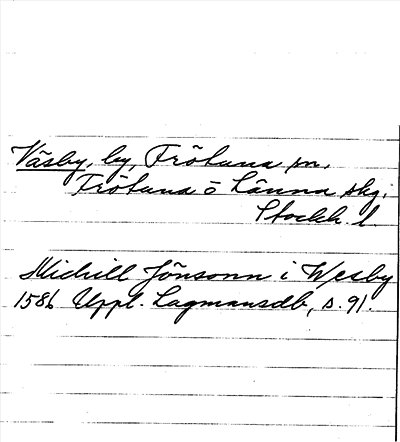 Väsby, by, Frötuna sn,
Frötuna o Länna skg;
Stockh. l.
Michill Jönsonn i Wesby
1586 Uppl. Lagmansdb, s. 91.